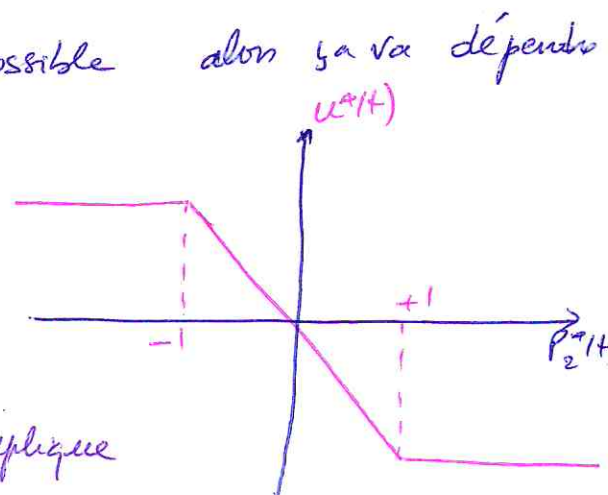 ossible alors ça va dépendre
u*(t)
+1
-1
P₂*(t)
plique